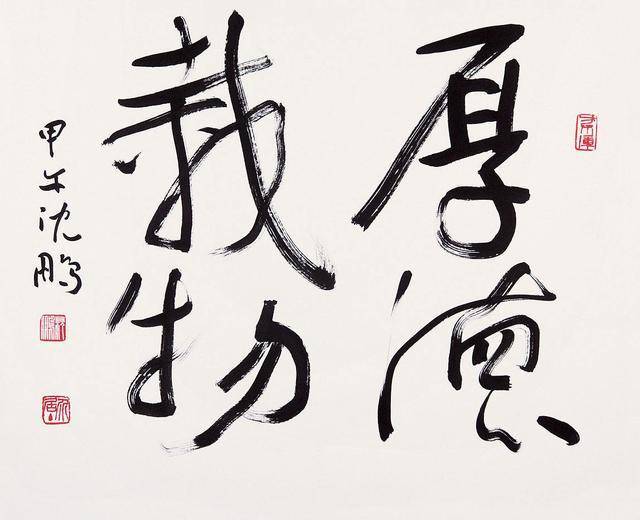 厚德
载物
甲午沈鹏